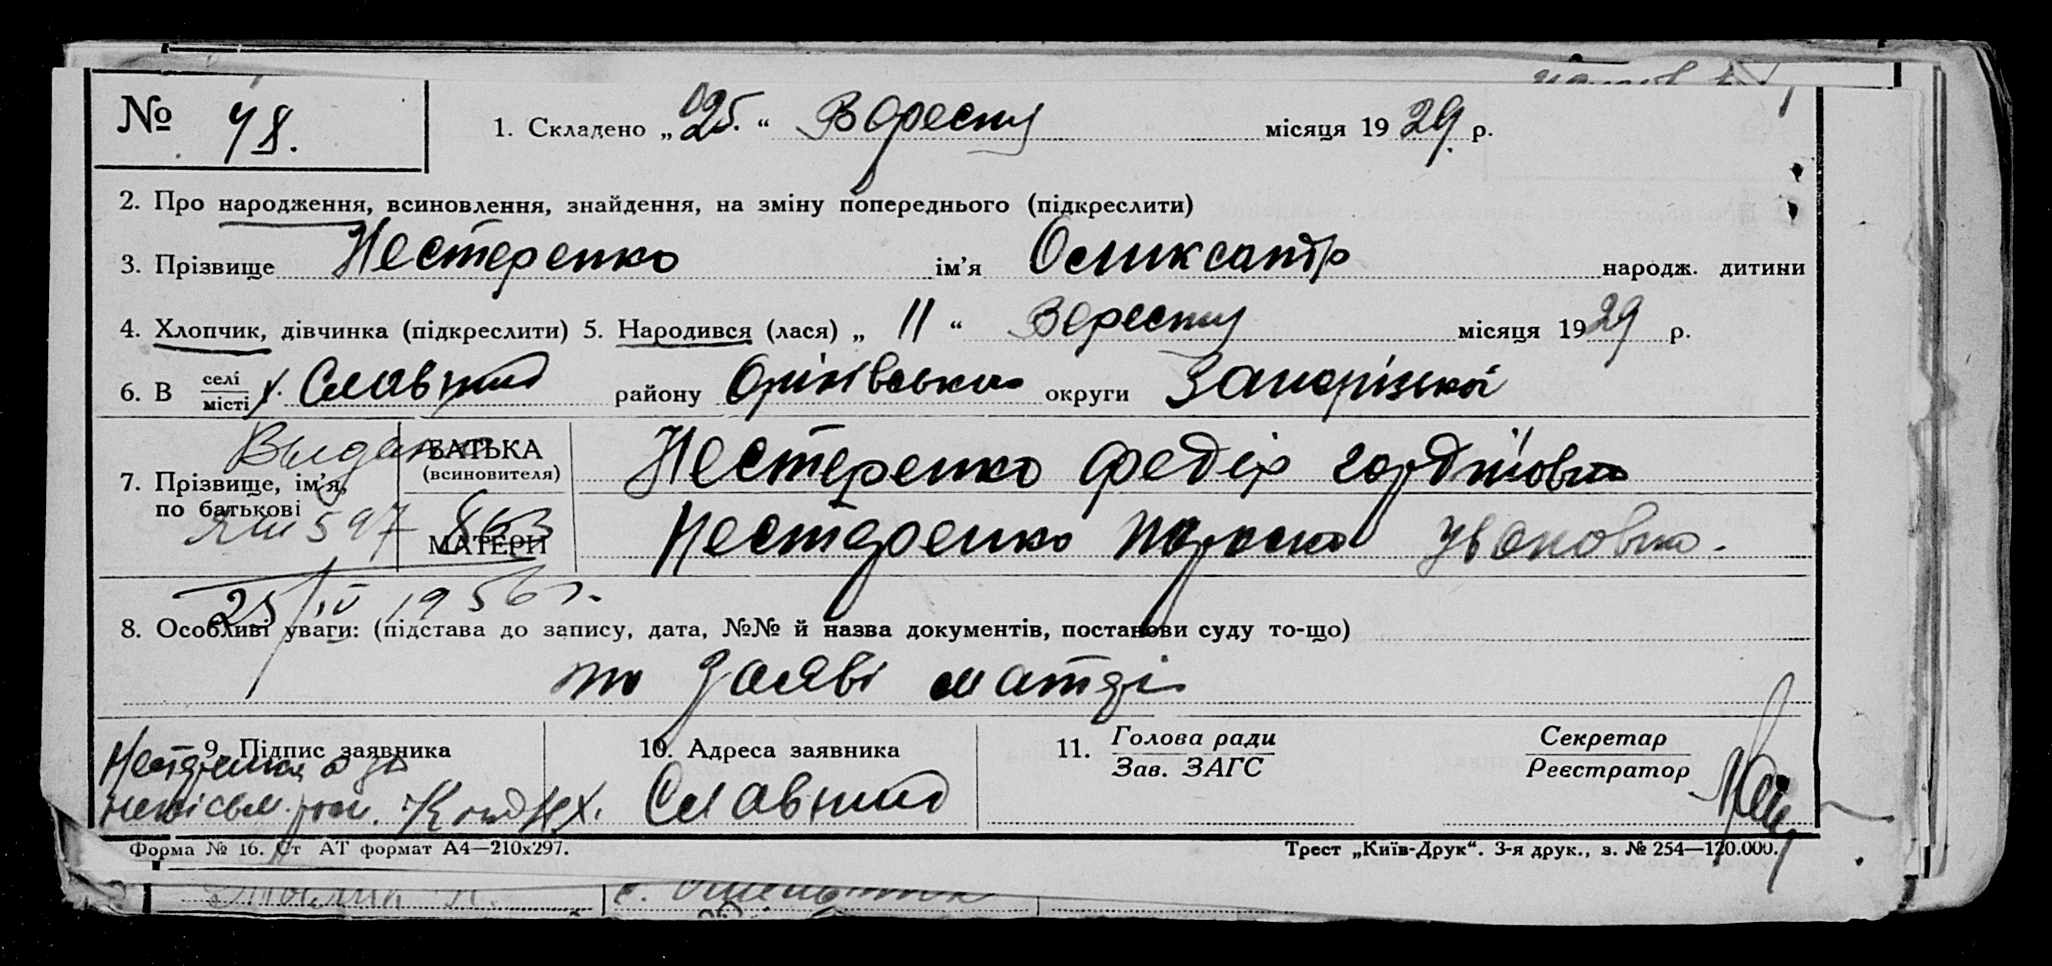 № 78.
1. Складено „25.“ Вересня місяця 1929. р.
2. Про народження, всиновлення, знайдення, на зміну попереднього (підкреслити)
3. Прізвище Нестеренко ім'я Оликсантр народж. дитини
4. Хлопчик, дівчинка (підкреслити) 5. Народився (лася) „11“ Вересня місяця 1929 р.
6. В селі місті х. Славгид району Оріхівського округи Запорізької
Выдано
7. Прізвище, ім'я, по батькові
БАТЬКА (всиновителя) Нестеренко Федір Гордійович
ЯШ 597 863
МАТЕРИ Нестеренко Параска Ивановна.
25/IV 1956 г.
8. Особливі уваги: (підстава до запису, дата, №№ й назва документів, постанови суду то-що)
по заяві матері
9. Підпис заявника
10. Адреса заявника
11. Голова ради Зав. ЗАГС
Секретар Реєстратор
Нестеренко а за
Славгид
Форма № 16. Ст АТ формат А4—210х297.
Трест „Київ-Друк“. 3-я друк., з. № 254—120.000.